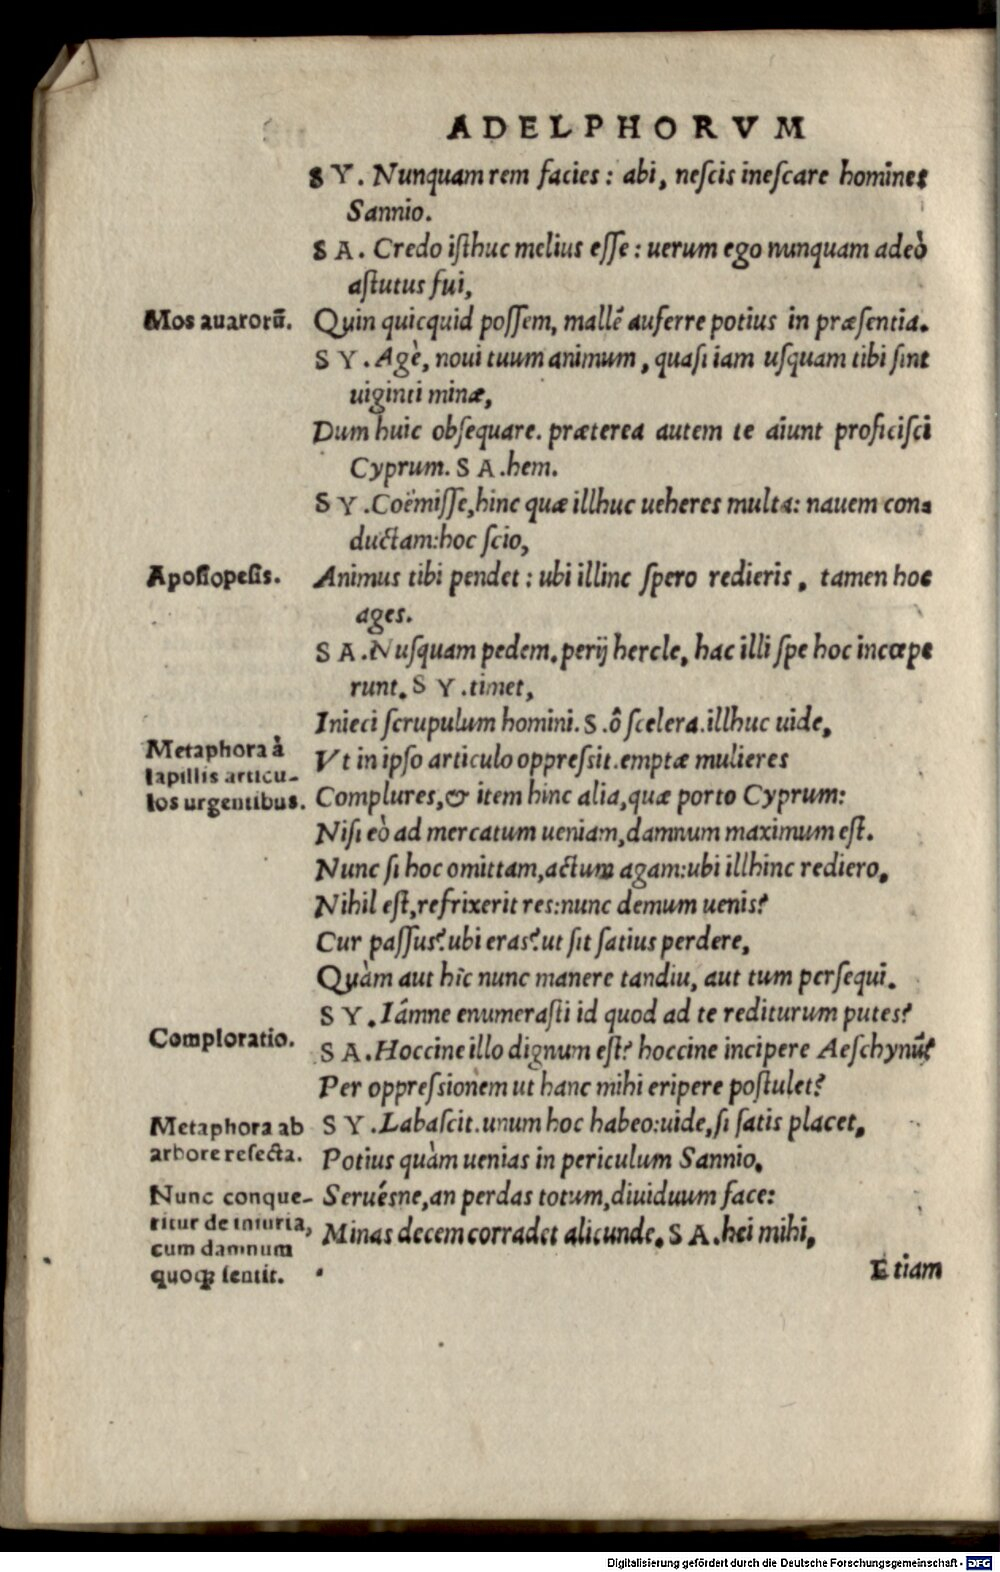 ADELPHORVM
SY. Nunquam rem facies: abi, neſcis ineſcare homines
Sannio.
SA. Credo iſthuc melius eſſe: uerum ego nunquam adeò
aſtutus fui,
Mos auarorū.
Quin quicquid poſſem, mallē auferre potius in præſentia.
SY. Agè, noui tuum animum, quaſi iam uſquam tibi ſint
uiginti minæ,
Dum huic obſequare. præterea autem te aiunt proficiſci
Cyprum. SA. hem.
SY. Coëmiſſe, hinc quæ illhuc ueheres multa: nauem con-
ductam: hoc ſcio,
Apoſiopeſis.
Animus tibi pendet: ubi illinc ſpero redieris, tamen hoc
ages.
SA. Nuſquam pedem. perij hercle, hac illi ſpe hoc incœpe
runt. SY. timet,
Inieci ſcrupulum homini. S. ô ſcelera. illhuc uide,
Metaphora à
lapillis articu-
los urgentibus.
Vt in ipſo articulo oppreſsit. emptæ mulieres
Complures, & item hinc alia, quæ porto Cyprum:
Niſi eò ad mercatum ueniam, damnum maximum eſt.
Nunc ſi hoc omittam, actum agam: ubi illhinc rediero,
Nihil eſt, refrixerit res: nunc demum uenis?
Cur paſſus? ubi eras? ut ſit ſatius perdere,
Quàm aut hîc nunc manere tandiu, aut tum perſequi.
SY. Iámne enumeraſti id quod ad te rediturum putes?
Comploratio.
SA. Hoccine illo dignum eſt? hoccine incipere Aeſchynū?
Per oppreſsionem ut hanc mihi eripere poſtulet?
Metaphora ab
arbore reſecta.
SY. Labaſcit. unum hoc habeo: uide, ſi ſatis placet,
Potius quàm uenias in periculum Sannio,
Nunc conque-
ritur de iniuria,
cum damnum
quoq; ſentit.
Seruésne, an perdas totum, diuiduum face:
Minas decem corradet alicunde. SA. hei mihi,
Etiam
Digitalisierung gefördert durch die Deutsche Forschungsgemeinschaft - DFG